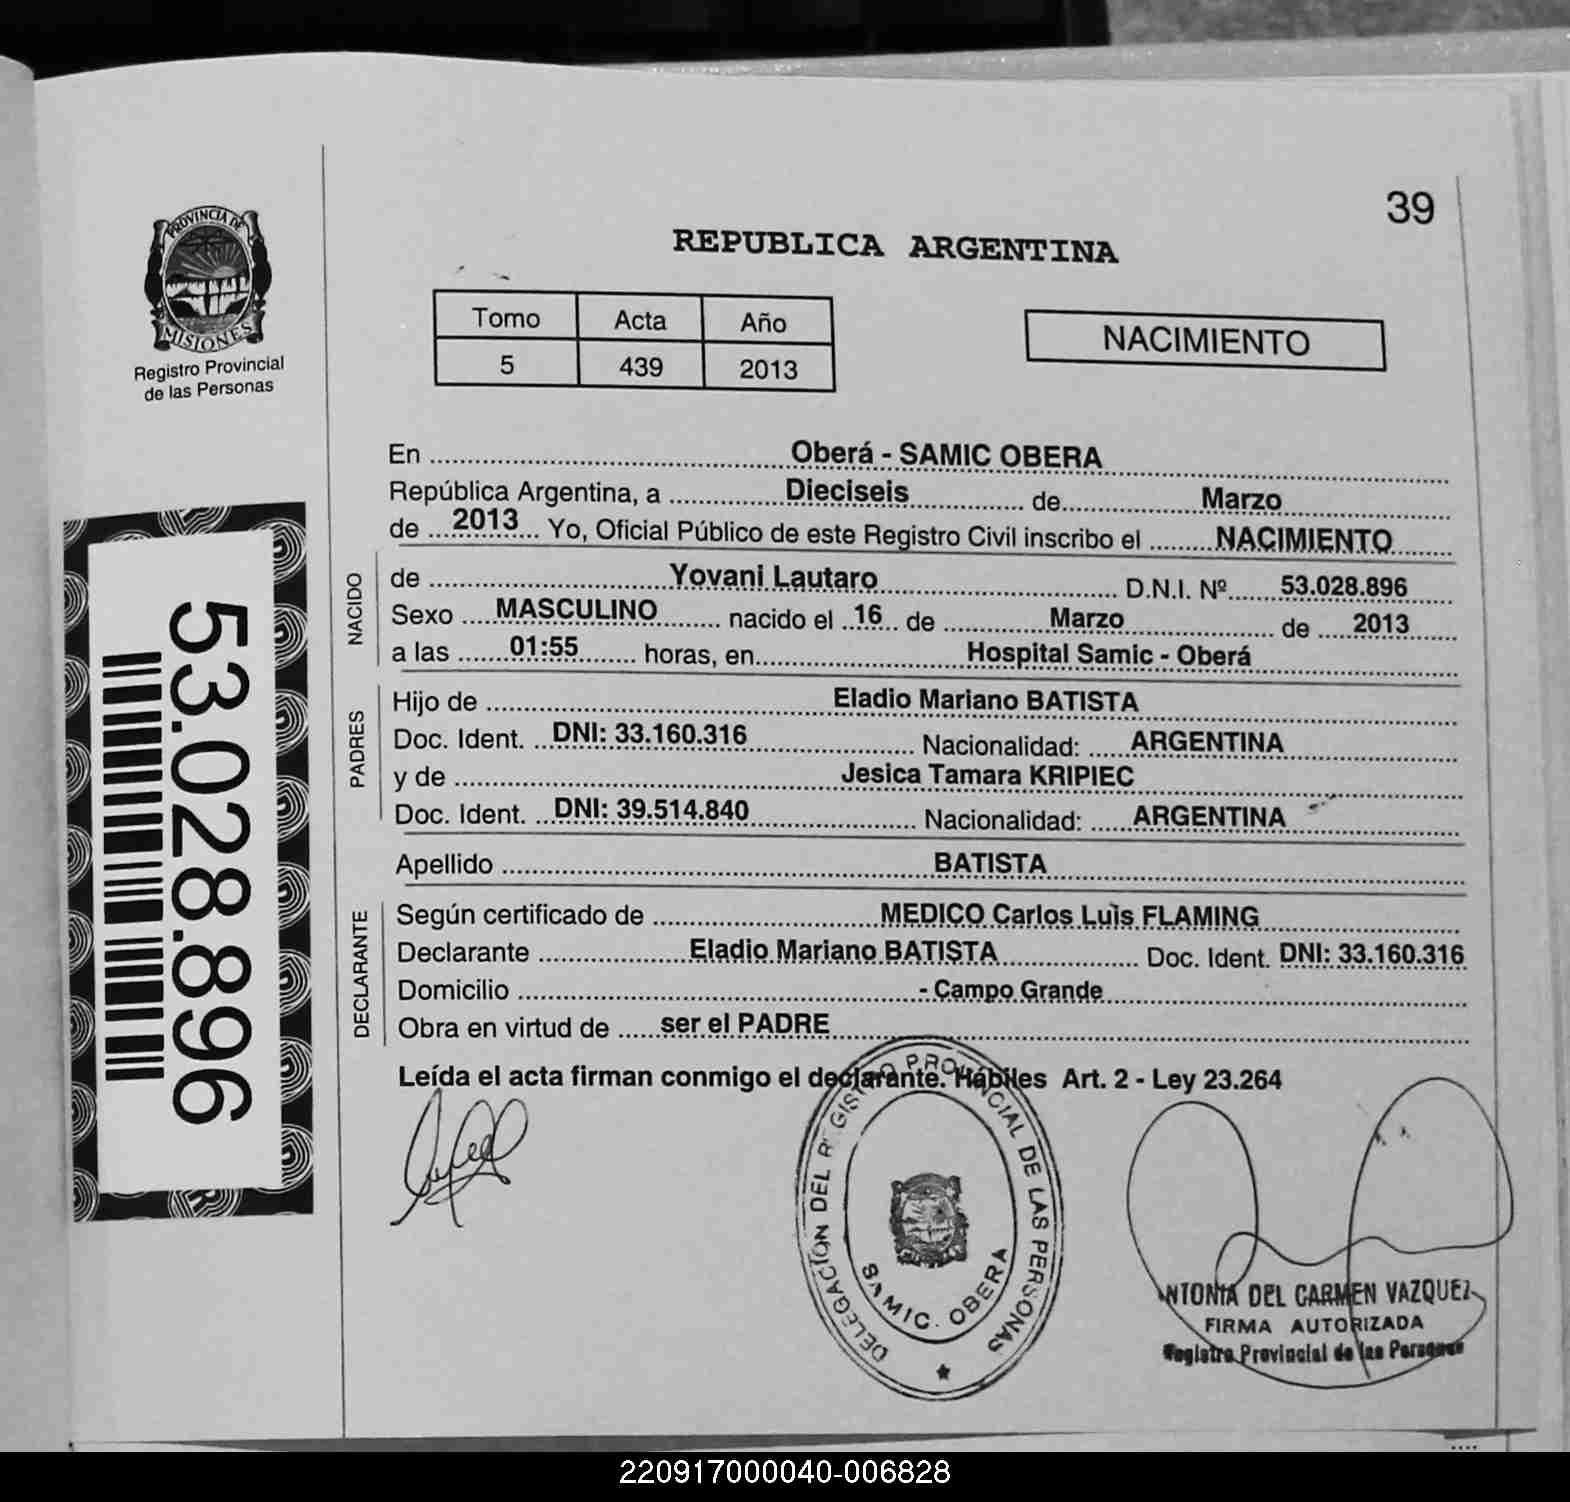 39
PROVINCIA DE
MISIONES
Registro Provincial
de las Personas
REPUBLICA ARGENTINA
Tomo Acta Año
5 439 2013
NACIMIENTO
En Oberá - SAMIC OBERA
República Argentina, a Dieciseis de Marzo
de 2013 Yo, Oficial Público de este Registro Civil inscribo el NACIMIENTO
NACIDO
de Yovani Lautaro D.N.I. Nº 53.028.896
Sexo MASCULINO nacido el 16 de Marzo de 2013
a las 01:55 horas, en Hospital Samic - Oberá
PADRES
Hijo de Eladio Mariano BATISTA
Doc. Ident. DNI: 33.160.316 Nacionalidad: ARGENTINA
y de Jesica Tamara KRIPIEC
Doc. Ident. DNI: 39.514.840 Nacionalidad: ARGENTINA
Apellido BATISTA
DECLARANTE
Según certificado de MEDICO Carlos Luis FLAMING
Declarante Eladio Mariano BATISTA Doc. Ident. DNI: 33.160.316
Domicilio - Campo Grande
Obra en virtud de ser el PADRE
Leída el acta firman conmigo el declarante. Hábiles Art. 2 - Ley 23.264
53.028.896
DELEGACION DEL REGISTRO PROVINCIAL DE LAS PERSONAS
SAMIC. OBERA
NTONIA DEL CARMEN VAZQUEZ
FIRMA AUTORIZADA
Registro Provincial de las Personas
220917000040-006828